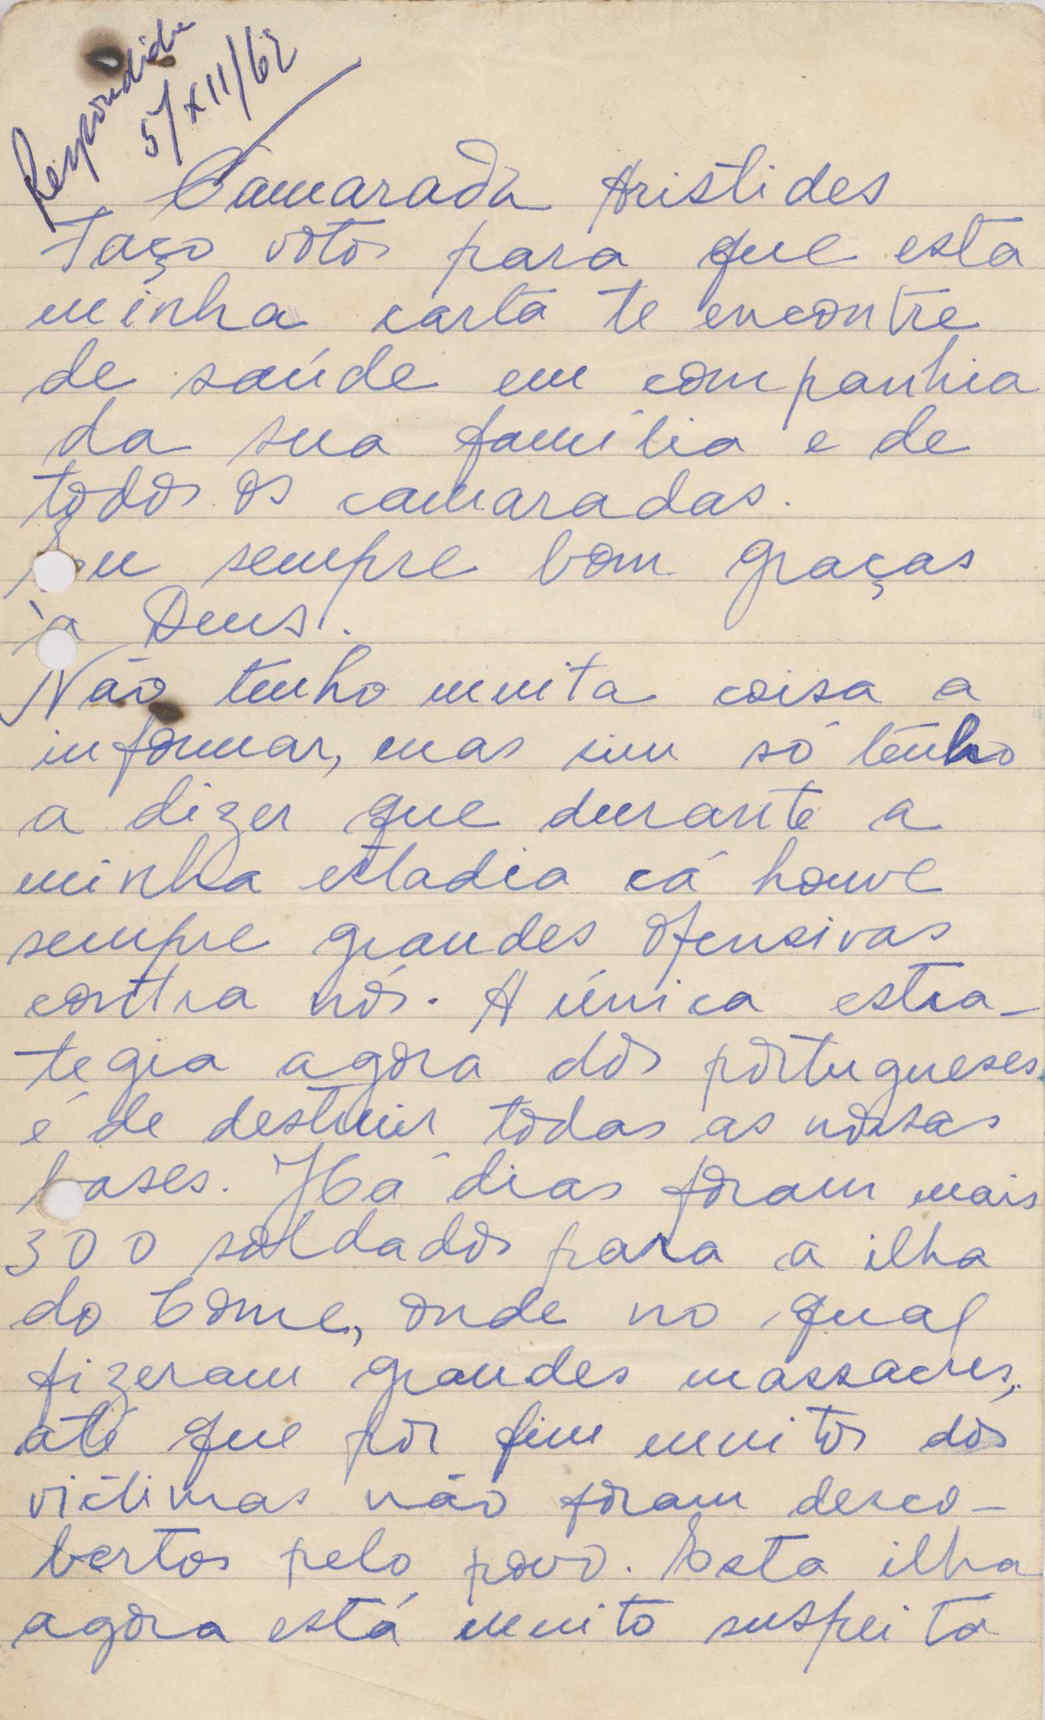 Respondida
5/XII/62
Camarada Aristides
Faço votos para que esta
minha carta te encontre
de saúde em companhia
da sua família e de
todos os camaradas.
Eu sempre bom graças
à Deus.
Não tenho muita coisa a
informar, mas sim só tenho
a dizer que durante a
minha estadia cá houve
sempre grandes ofensivas
contra nós. A única estra-
tegia agora dos portugueses
é de destruir todas as nossas
bases. Há dias foram mais
300 soldados para a ilha
do Come, onde no qual
fizeram grandes massacres,
até que por fim muitos dos
victimas não foram desco-
bertos pelo povo. Esta ilha
agora está muito suspeita